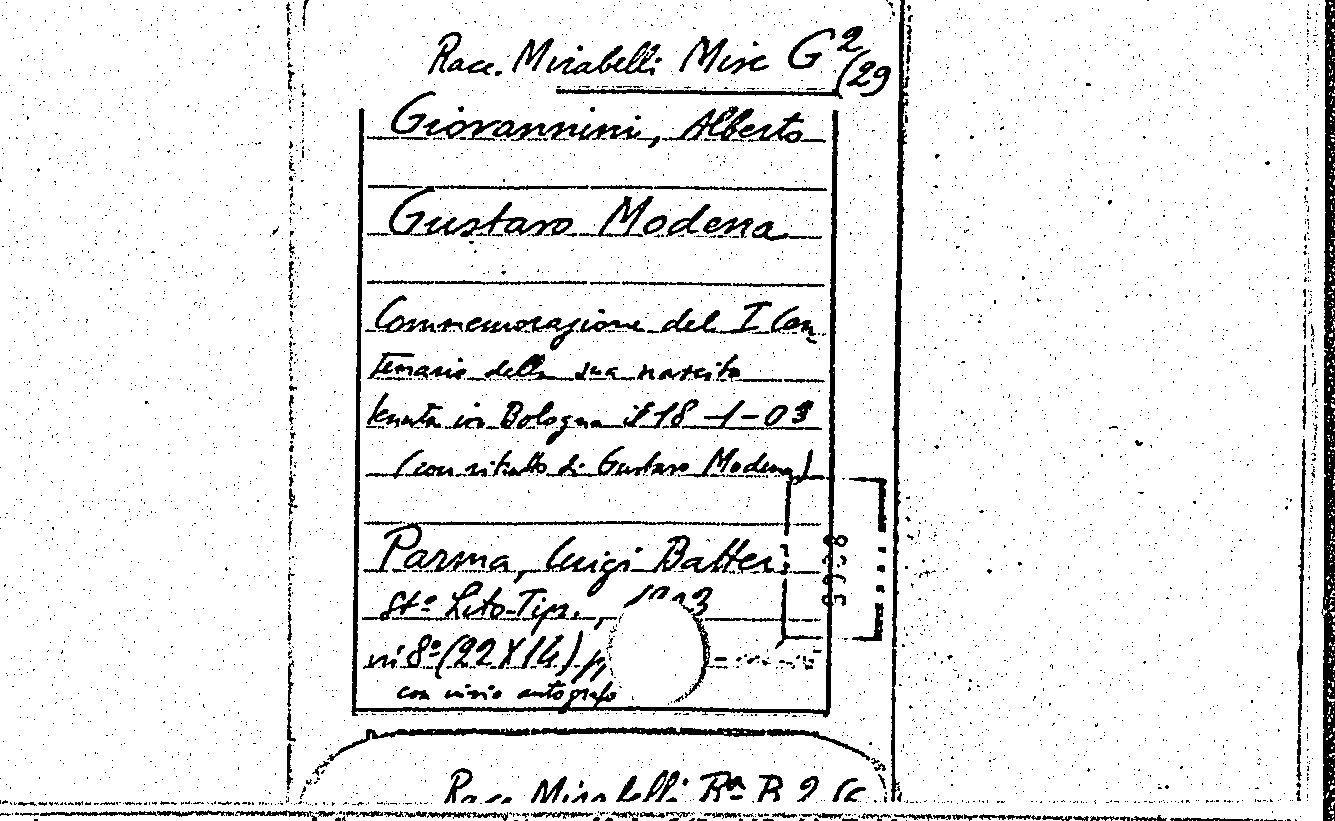 Racc. Mirabelli Misc G 2/29
Giovannini, Alberto
Gustavo Modena
Commemorazione del I Cen
tenario della sua nascita
tenuta in Bologna il 18-1-03
(con ritratto di Gustavo Modena)
Parma, Luigi Battei
St.º Lito-Tip.,
in 8º (22X14)
con invio autografo
Racc Mirabelli